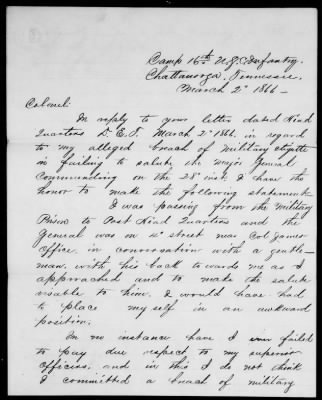 Camp 16th U.S. Infantry.
Chattanooga, Tennessee.
March 2d 1866 —
Colonel:
In reply to your letter dated Head
Quarters D. E. T. March 2d 1866, in regard
to my alleged breach of military etiquette
in failing to salute the Major General
Commanding on the 28" inst. I have the
honor to make the following statement—
I was passing from the Military
Prison to Post Head Quarters and the
General was on 4" Street near Col. James
Office, in conversation with a gentle-
man, with his back towards me as I
approached and to make the salute
visible to him, I would have had
to place my self in an awkward
position.
In no instance have I ever failed
to pay due respect to my superior
officers, and in this I do not think
I committed a breach of military